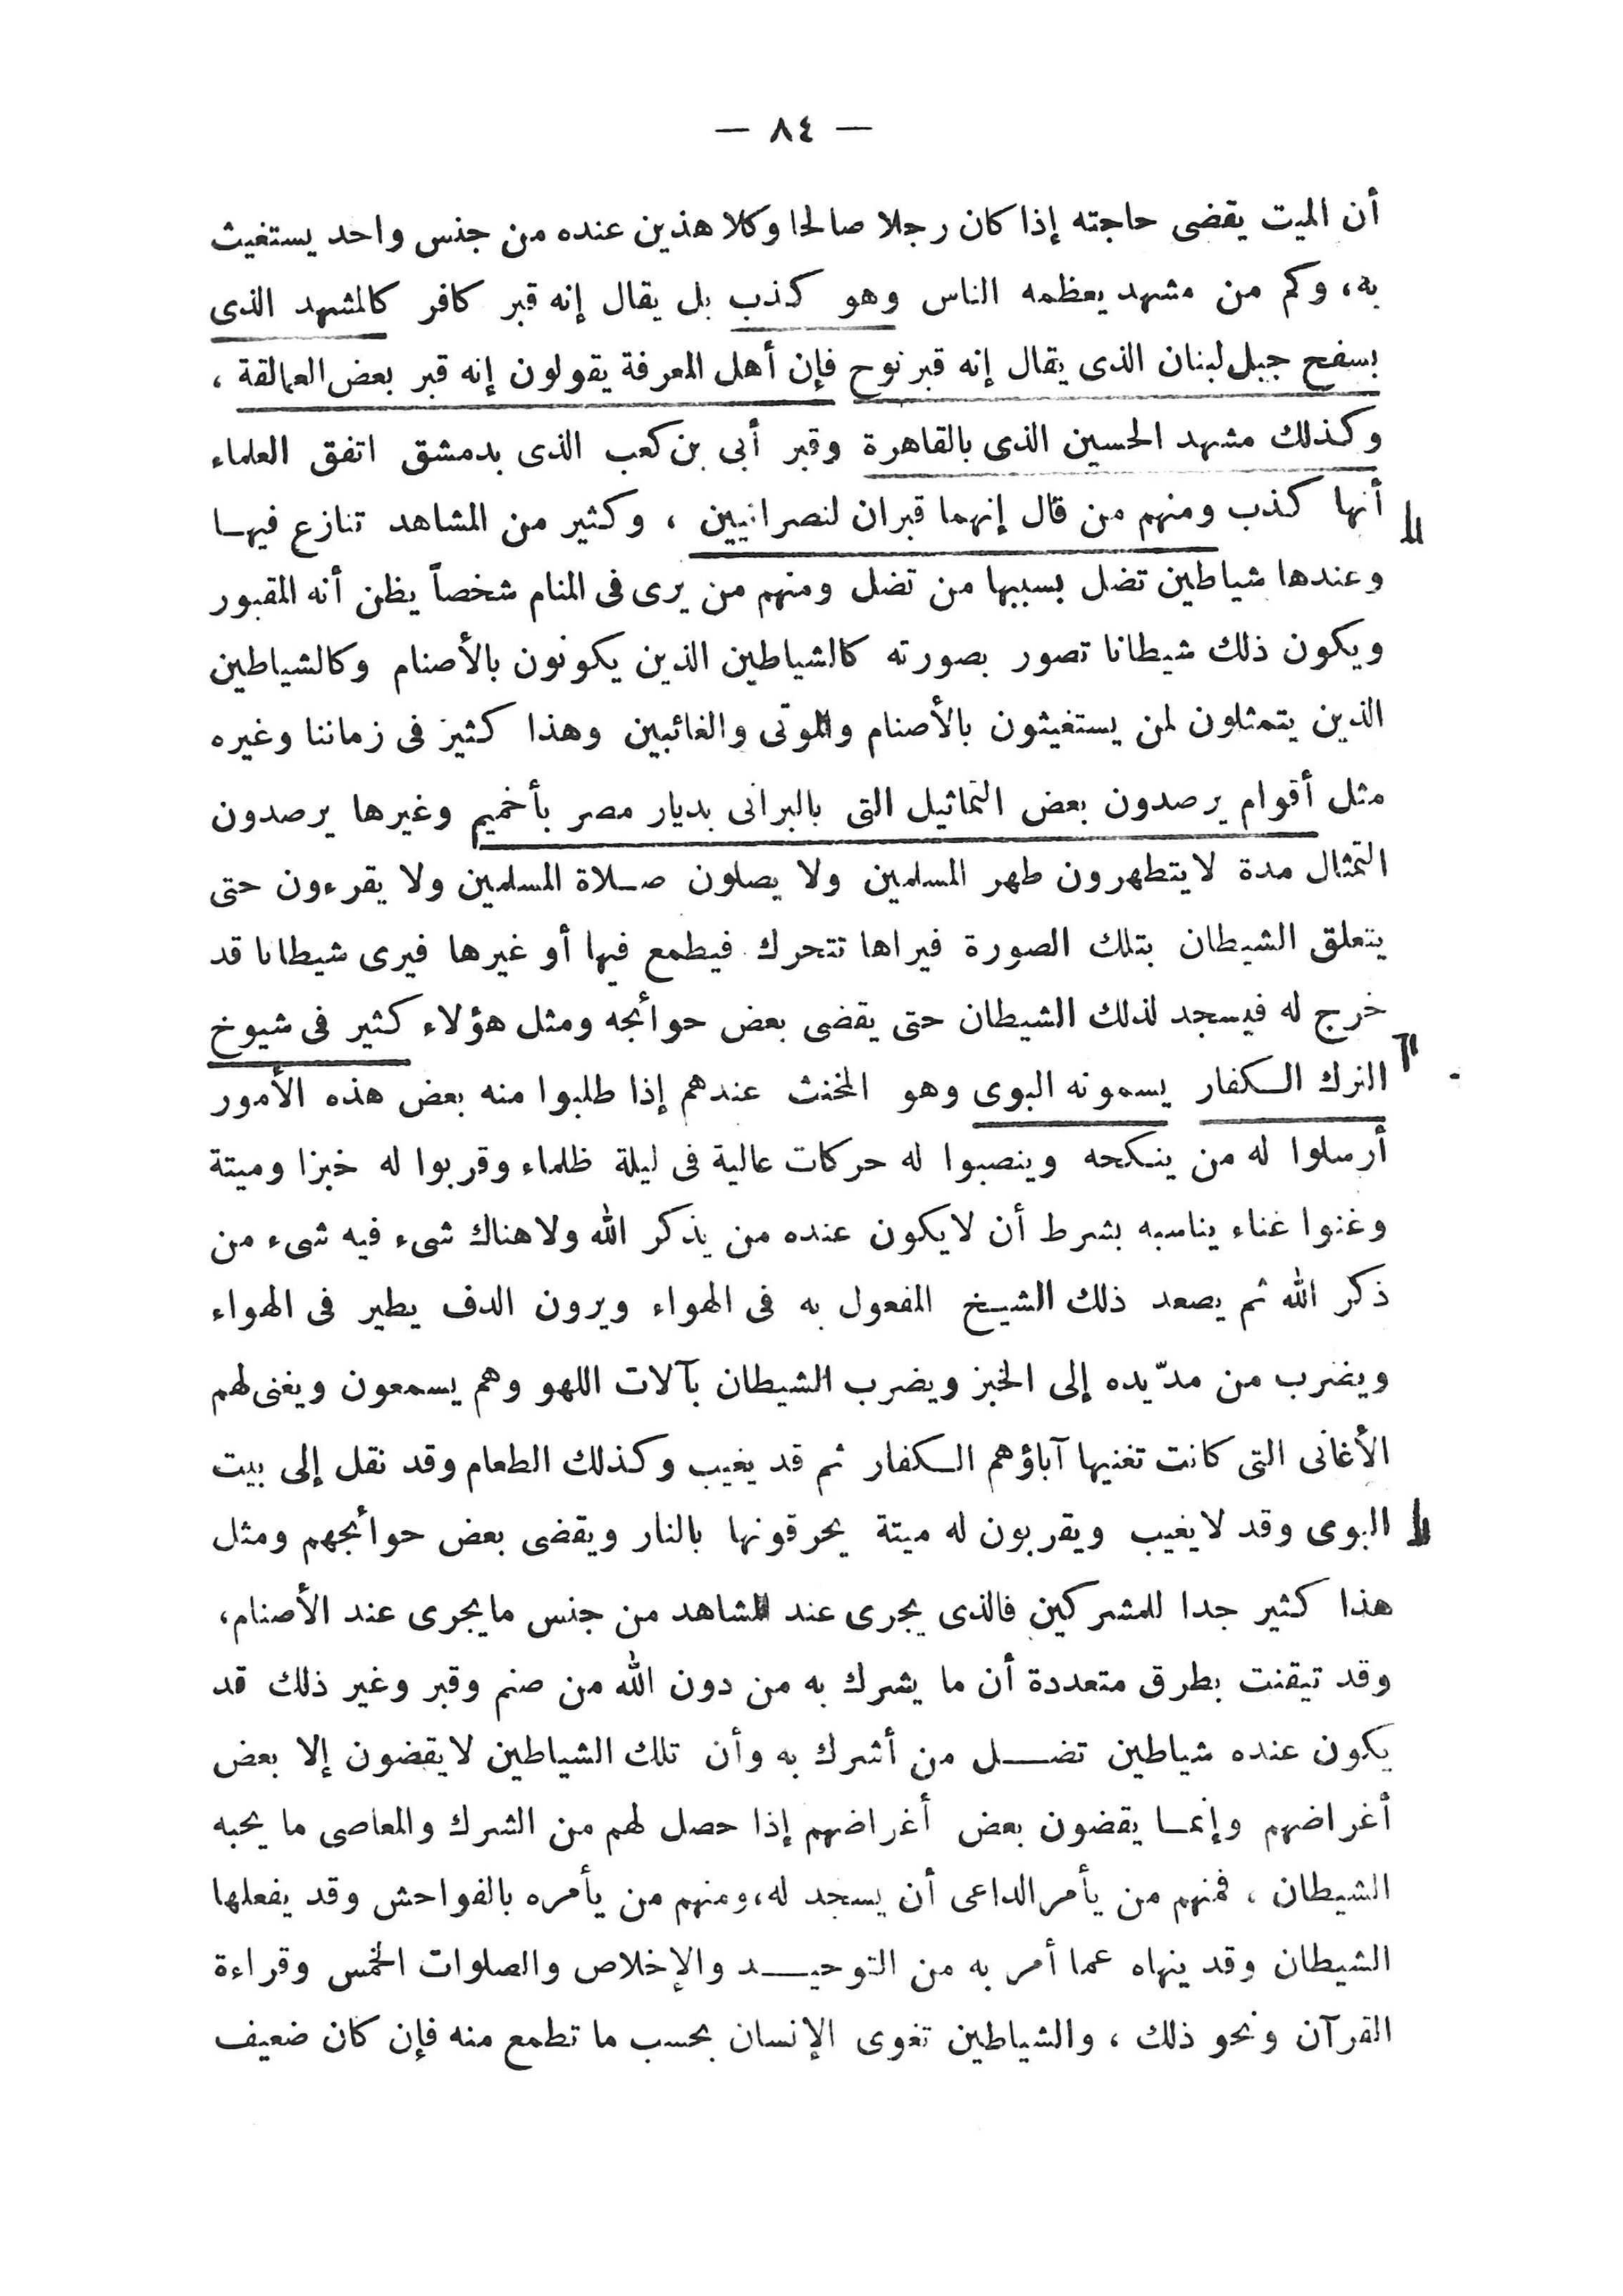 — ٨٤ —
أن الميت يقضى حاجته إذا كان رجلا صالحا وكلا هذين عنده من جنس واحد يستغيث
به، وكم من مشهد يعظمه الناس وهو كذب بل يقال إنه قبر كافر كالمشهد الذى
بسفح جبل لبنان الذى يقال إنه قبر نوح فإن أهل المعرفة يقولون إنه قبر بعض العمالقة ،
وكذلك مشهد الحسين الذى بالقاهرة وقبر أبى بن كعب الذى بدمشق اتفق العلماء
أنها كذب ومنهم من قال إنهما قبران لنصرانيين ، وكثير من المشاهد تنازع فيها
وعندها شياطين تضل بسببها من تضل ومنهم من يرى فى المنام شخصاً يظن أنه المقبور
ويكون ذلك شيطانا تصور بصورته كالشياطين الذين يكونون بالأصنام وكالشياطين
الذين يتمثلون لمن يستغيثون بالأصنام والموتى والغائبين وهذا كثيز فى زماننا وغيره
مثل أقوام يرصدون بعض التماثيل التى بالبرانى بديار مصر بأخميم وغيرها يرصدون
التمثال مدة لايتطهرون طهر المسلمين ولا يصلون صلاة المسلمين ولا يقرءون حتى
يتعلق الشيطان بتلك الصورة فيراها تتحرك فيطمع فيها أو غيرها فيرى شيطانا قد
خرج له فيسجد لذلك الشيطان حتى يقضى بعض حوائجه ومثل هؤلاء كثير فى شيوخ
الترك الكفار يسمونه البوى وهو المخنث عندهم إذا طلبوا منه بعض هذه الأمور
أرسلوا له من ينكحه وينصبوا له حركات عالية فى ليلة ظلماء وقربوا له خبزا وميتة
وغنوا غناء يناسبه بشرط أن لايكون عنده من يذكر الله ولا هناك شىء فيه شىء من
ذكر الله ثم يصعد ذلك الشيخ المفعول به فى الهواء ويرون الدف يطير فى الهواء
ويضرب من مدّ يده إلى الخبز ويضرب الشيطان بآلات اللهو وهم يسمعون ويغنى لهم
الأغانى التى كانت تغنيها آباؤهم الكفار ثم قد يغيب وكذلك الطعام وقد نقل إلى بيت
البوى وقد لايغيب ويقربون له ميتة يحرقونها بالنار ويقضى بعض حوائجهم ومثل
هذا كثير جدا للمشركين فالذى يجرى عند المشاهد من جنس مايجرى عند الأصنام،
وقد تيقنت بطرق متعددة أن ما يشرك به من دون الله من صنم وقبر وغير ذلك قد
يكون عنده شياطين تضل من أشرك به وأن تلك الشياطين لايقضون إلا بعض
أغراضهم وإنما يقضون بعض أغراضهم إذا حصل لهم من الشرك والمعاصى ما يحبه
الشيطان ، فمنهم من يأمر الداعى أن يسجد له، ومنهم من يأمره بالفواحش وقد يفعلها
الشيطان وقد ينهاه عما أمر به من التوحيد والإخلاص والصلوات الخمس وقراءة
القرآن ونحو ذلك ، والشياطين تغوى الإنسان بحسب ما تطمع منه فإن كان ضعيف